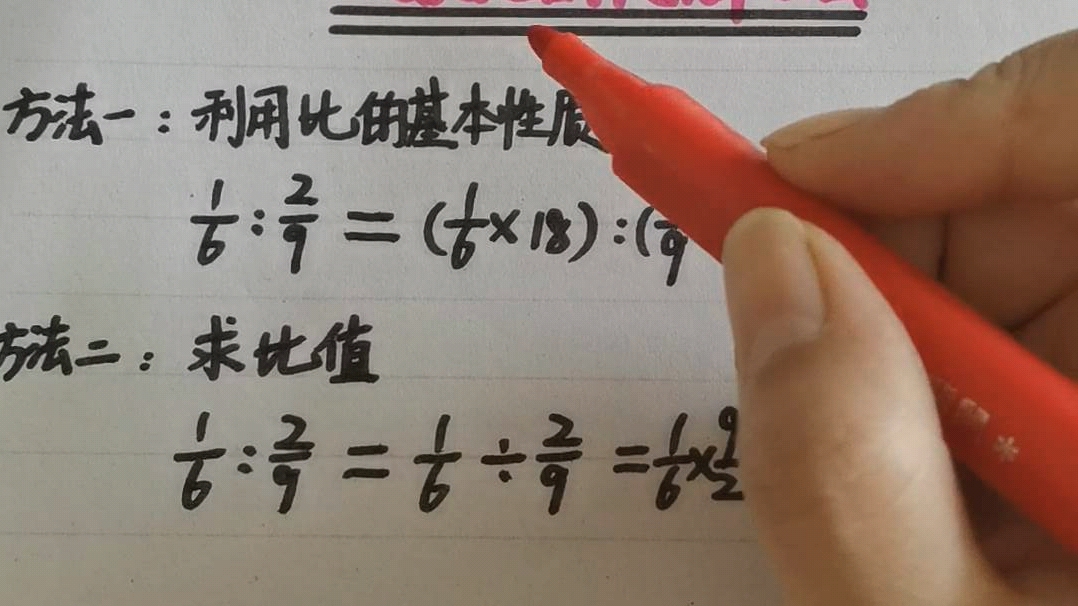 方法一：利用比的基本性质
1/6 : 2/9 = (1/6 × 18) : ( /9
方法二：求比值
1/6 : 2/9 = 1/6 ÷ 2/9 = 1/6 × 9/2